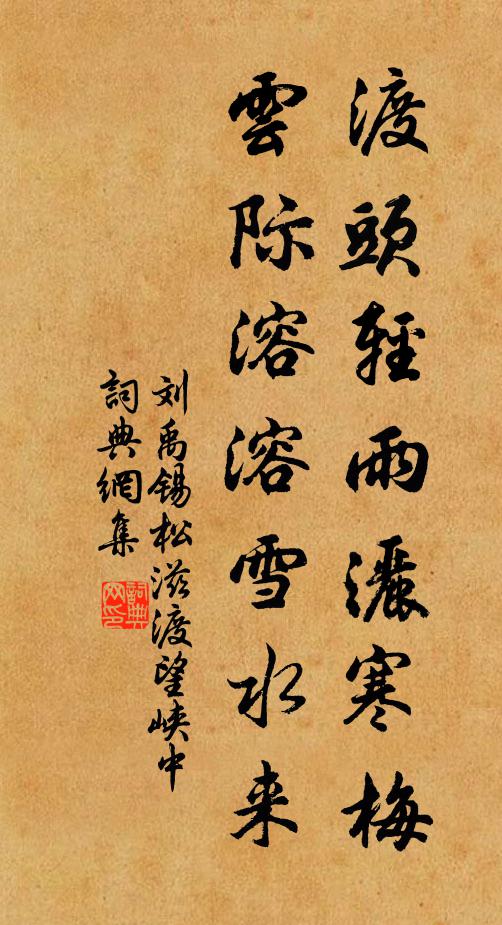 渡頭輕雨灑寒梅
雲际溶溶雪水来
刘禹锡松滋渡望峡中
詞典網集
詞典
网印